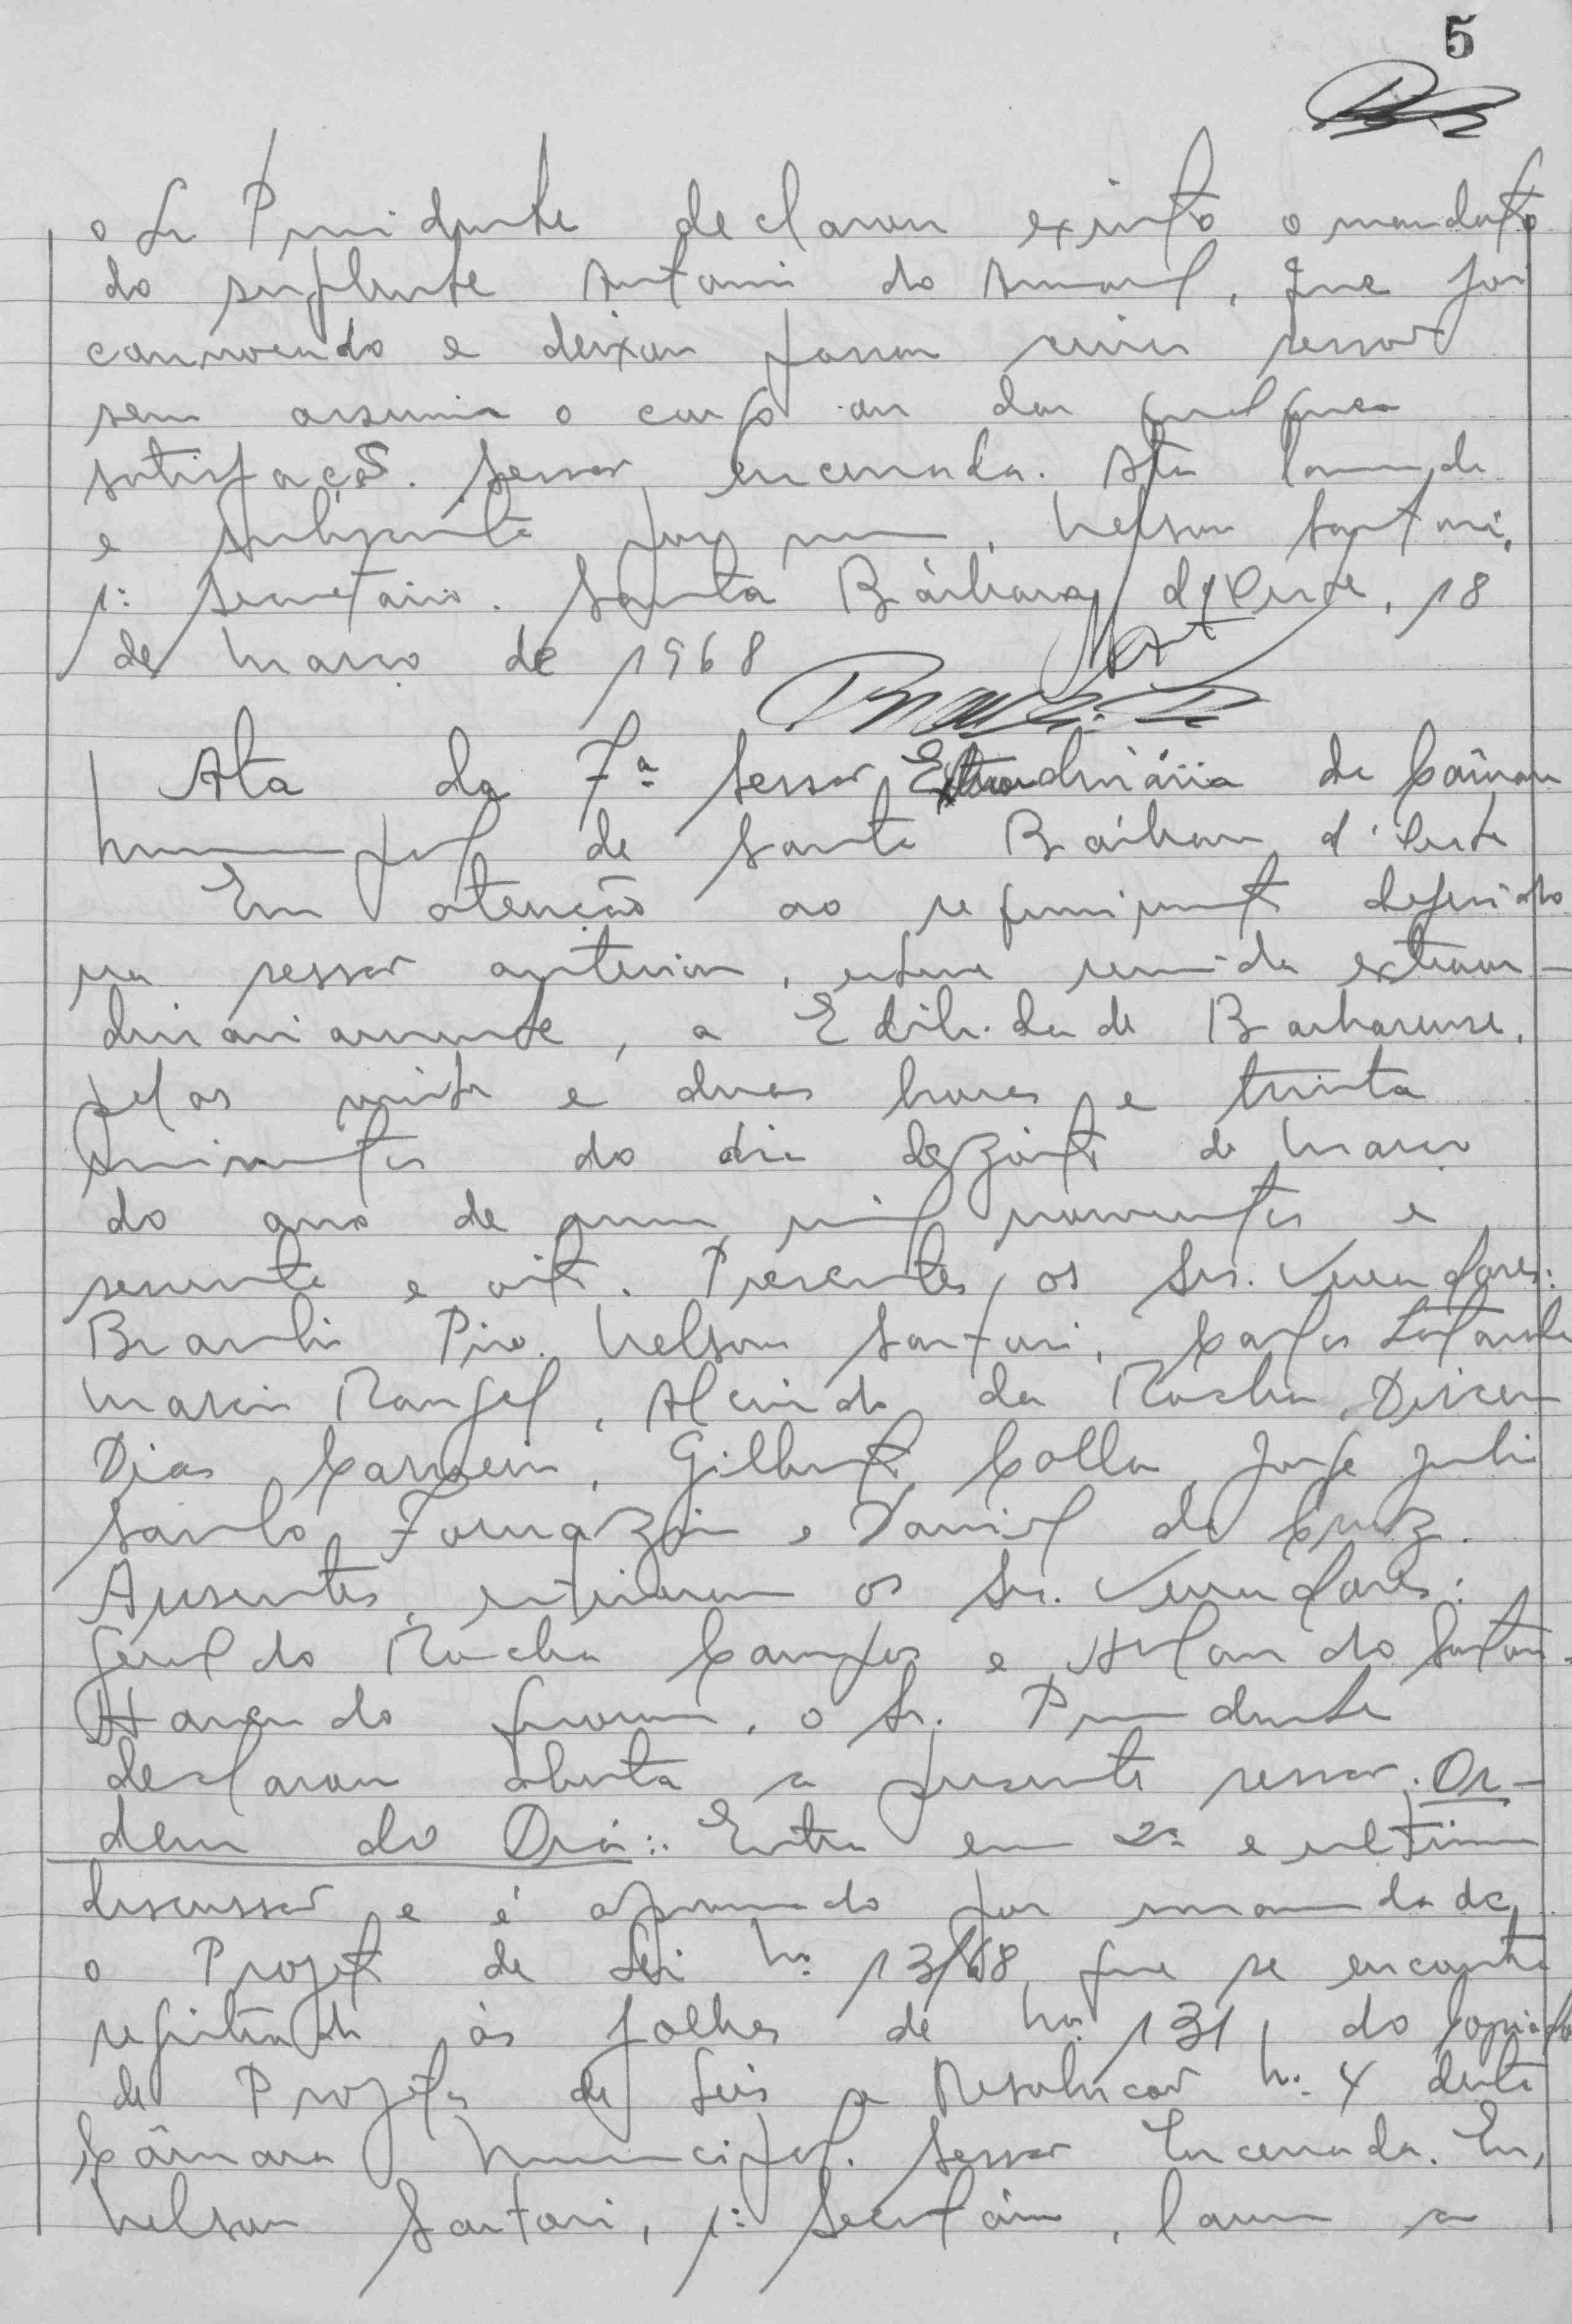 5
o Sr Presidente declarou extinto o mandato
do suplente Antonio do Amaral, que foi
convocado e deixou passar cinco sessões
sem assumir o cargo ou dar qualquer
satisfação. Sessão encerrada. Ata lavrada
e subscrita por mim, Nelson Sartori,
1º Secretário. Santa Bárbara d'Oeste, 18
de Março de 1968
Ata da 7ª Sessão Extraordinária da Câmara
Municipal de Santa Bárbara d'Oeste
Em atenção ao requerimento deferido
na sessão anterior, esteve reunida extraor-
dinariamente, a Edilidade Barbarense,
pelas vinte e duas horas e trinta
minutos do dia dezoito de Março
do ano de mil novecentos e
sessenta e oito. Presentes, os Srs. Vereadores:
Braulio Pio, Nelson Sartori, Carlos
Marcio Rangel, Alcindo da Rocha, Dirceu
Dias Carneiro, Gilberto Colla, Jorge Julio
Santo Fornazin e Daniel da Cruz.
Ausentes, estiveram os Srs. Vereadores:
Geraldo Rocha Campos e Orlando Sartori.
Havendo quorum, o Sr. Presidente
declarou aberta a presente sessão. Or-
dem do Dia: Entra em 2ª e última
discussão e é aprovado por unanimidade,
o Projeto de Lei Nº 13/68, que se encontra
registrado às folhas de Nº 131, do Copiador
de Projetos de Leis e Resolução Nº 4 desta
Câmara Municipal. Sessão Encerrada. Eu,
Nelson Sartori, 1º Secretário, lavrei a